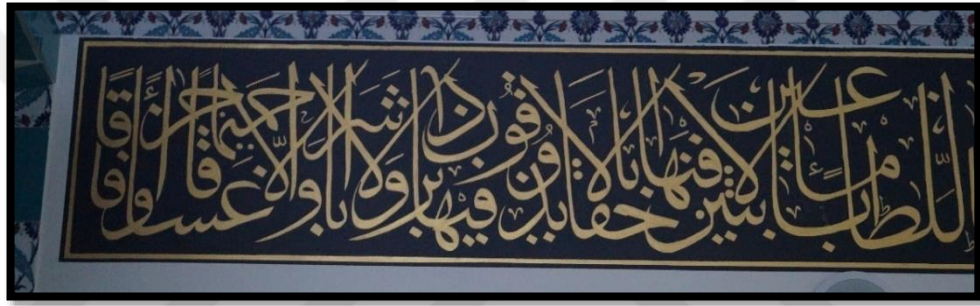 للطاغين مآبا لابثين فيها احقابا لا يذوقون فيها بردا ولا شرابا الا حميما وغساقا جزاء وفاقا